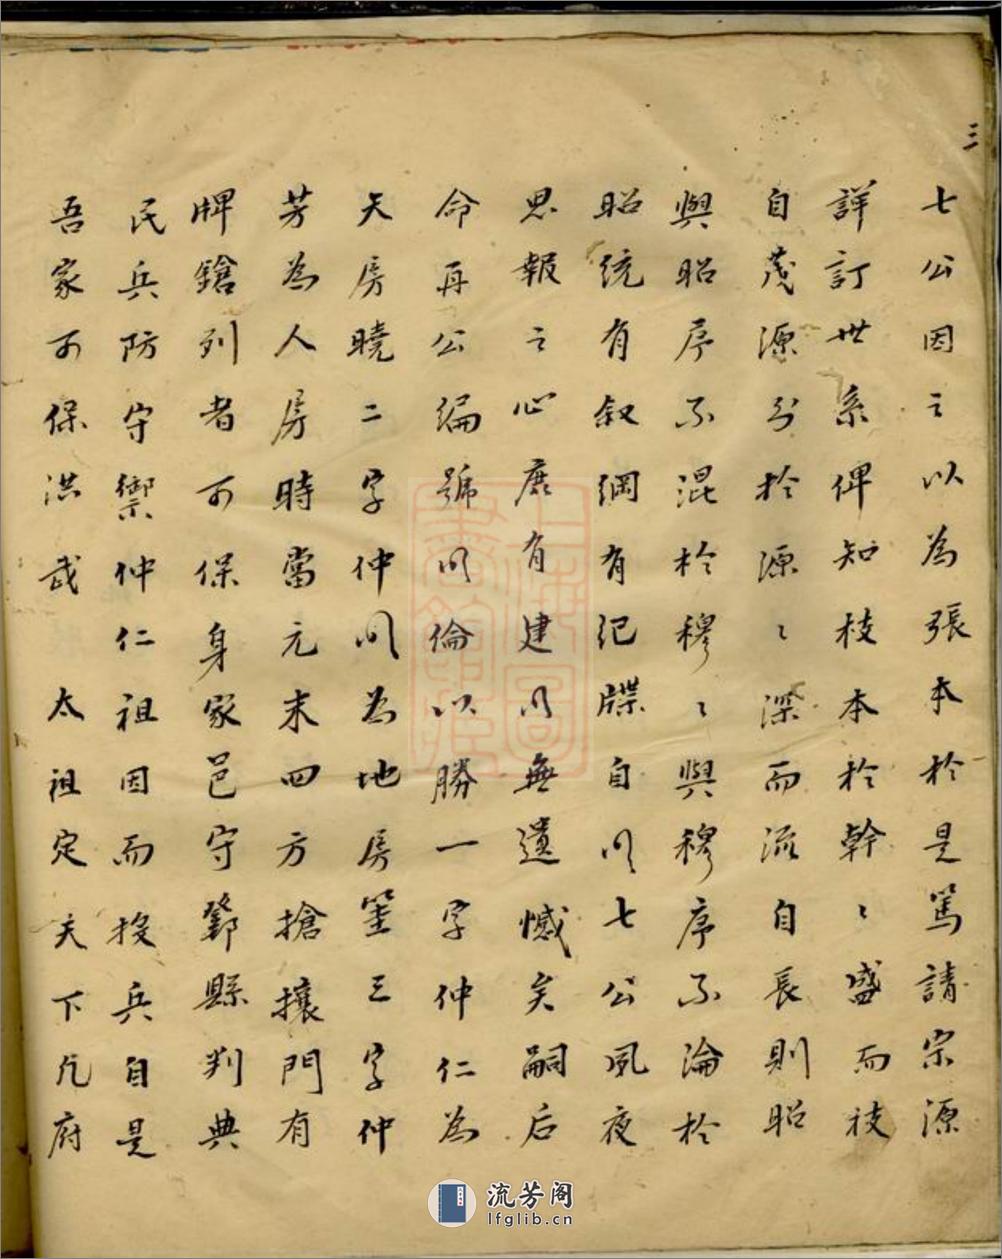 三
七公因之以為張本於是篤請宗源
詳訂世系俾知枝本於幹〻盛而枝
自茂源分於源〻深而流自長則昭
與昭序不混於穆〻與穆序不淪於
昭統有叙綱有紀牒自以七公夙夜
思報之心庶有建以無遺憾矣嗣后
命再公編號以倫以勝一字仲仁為
天房曉二字仲以為地房筆三字仲
芳為人房時當元末四方搶攘門有
牌鎗列者可保身家邑守鄞縣判典
民兵防守禦仲仁祖因而投兵自是
吾家可保洪武 太祖定天下凡府
流芳阁
lfglib.cn